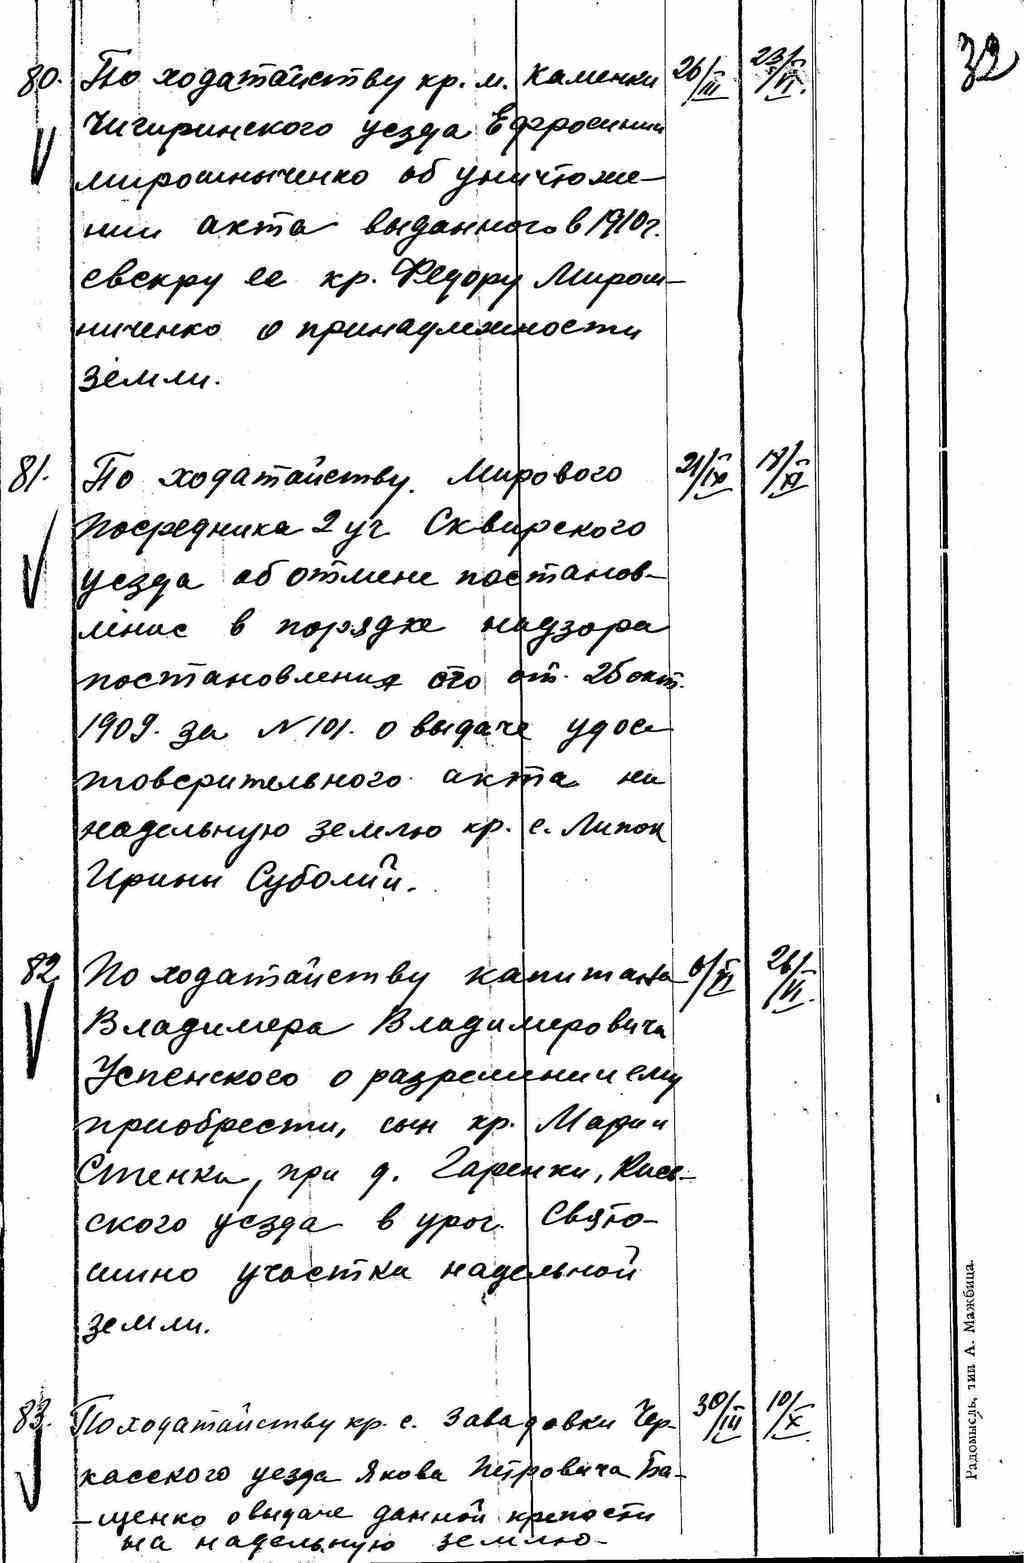 32
80. По ходатайству кр. м. Каменки 26/III 23/VI.
Чигиринского уезда Ефросинии
Мирошниченко об уничтоже-
нии акта выданного в 1910 г.
свекру ее кр. Федору Мирош-
ниченко о принадлежности
земли.
81. По ходатайству Мирового 21/IX 18/XI
Посредника 2 уч Сквирского
уезда об отмене постанов-
ление в порядке надзора
постановления его от. 25 окт.
1909. за N 101. о выдаче удос
товерительного акта на
надельную землю кр. с. Липок
Ирины Суболий.
82. По ходатайству капитана 6/VI 26/VI.
Владимера Владимеровича
Успенского о разрешении ему
приобрести, сын кр. Марии
Стенки, при д. Гаренки, Киев-
ского уезда в уроч. Свято-
шино участка надельной
земли.
83. По ходатайству кр. с. Завадовки Чер- 30/III 10/X
касского уезда Якова Петровича Ба-
-щенко о выдаче данной крепости
на надельную землю-
Радомысль, тип А. Мажбица.